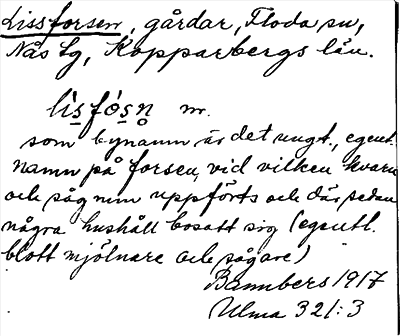 Lissforsen, gårdar, Floda sn,
Nås Lg, Kopparbergs län.
lìsfósn m.
som bynamn är det ungt, egentl.
namn på forsen, vid vilken kvarn
och såg m m uppförts och där sedan
några hushåll bosatt sig (egentl.
blott mjölnare och sågare)
Bannbers 1917
Ulma 321:3